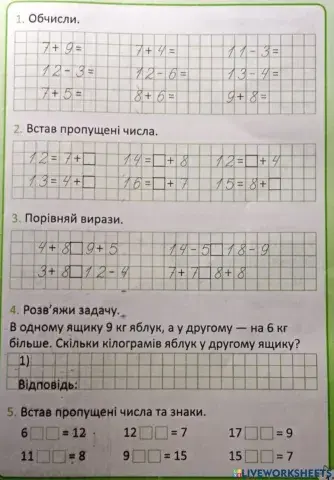 1. Обчисли.
7+9= 7+4= 11-3=
12-3= 12-6= 13-4=
7+5= 8+6= 9+8=
2. Встав пропущені числа.
12=7+□ 14=□+8 12=□+4
13=4+□ 16=□+7 15=8+□
3. Порівняй вирази.
4+8□9+5 14-5□18-9
3+8□12-4 7+7□8+8
4. Розв’яжи задачу.
В одному ящику 9 кг яблук, а у другому — на 6 кг
більше. Скільки кілограмів яблук у другому ящику?
1)
Відповідь:
5. Встав пропущені числа та знаки.
6□□=12 12□□=7 17□□=9
11□□=8 9□□=15 15□□=7
LIVEWORKSHEETS